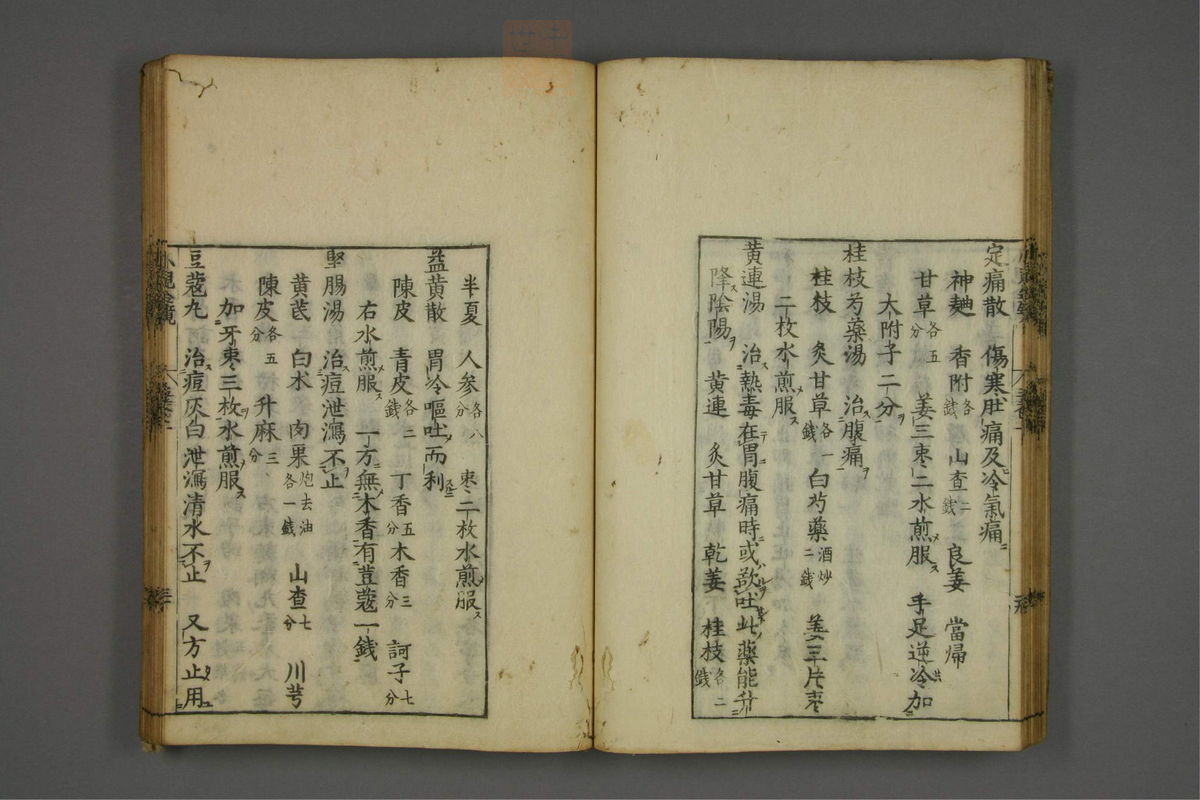 定痛散 傷寒肚痛及冷氣痛
神麯 香附各二錢 山查二錢 良姜 當帰
甘草各五分 姜三枣二水煎服 手足逆冷加
大附子二分
桂枝芍藥湯 治腹痛
桂枝 炙甘草各一錢 白芍藥酒炒二錢 姜三片枣
二枚水煎服
黄連湯 治熱毒在胃腹痛時或欲吐此藥能升
降陰陽 黄連 炙甘草 乾姜 桂枝各二錢
半夏 人参各八分 枣二枚水煎服
益黄散 胃冷嘔吐而利
陳皮 青皮各二錢 丁香五分 木香三分 訶子七分
右水煎服 一方無木香有荳蔻一錢
堅腸湯 治痘泄瀉不止
黄芪 白术 肉果炮去油各一錢 山查七分 川芎
陳皮各五分 升麻三分
加牙枣三枚水煎服
豆蔻丸 治痘灰白泄瀉清水不止 又方止用